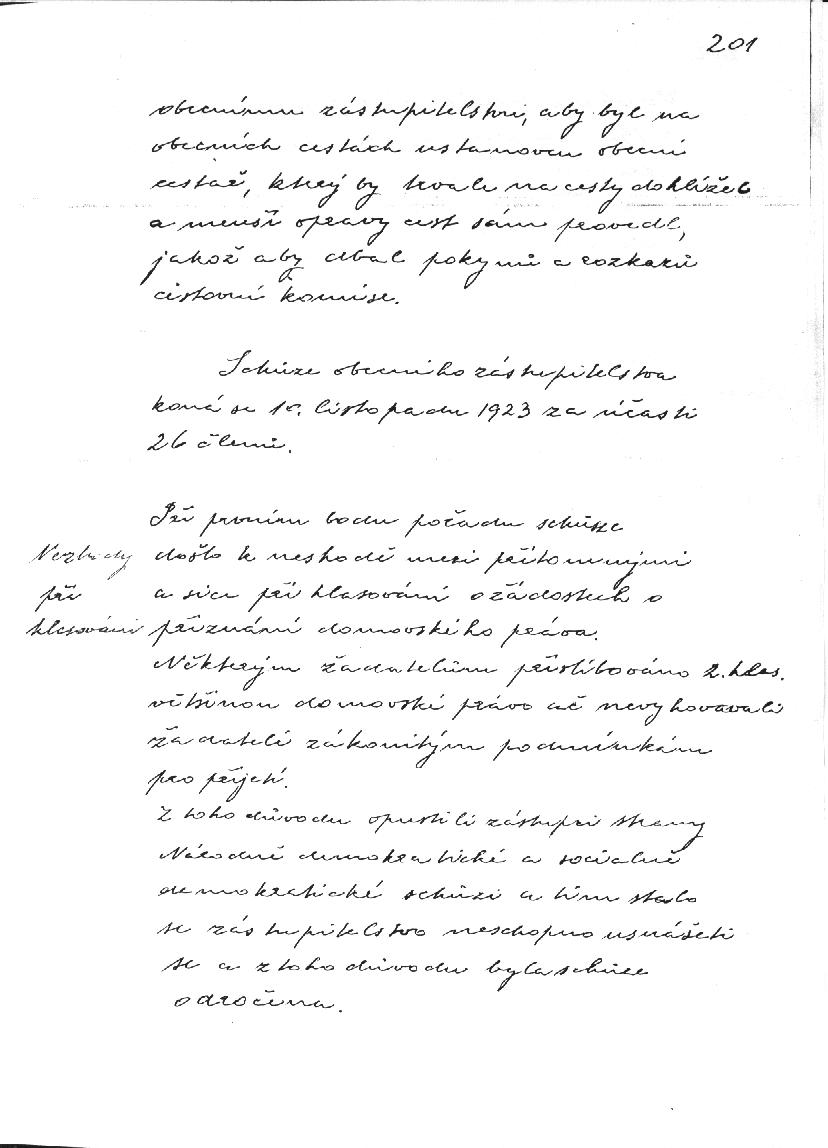 201
obecnímu zástupitelstvu, aby byl na
obecních cestách ustanoven obecní
cestář, který by trvale na cesty dohlížel
a menší opravy cest sám provedl,
jakož aby dbal pokynů a rozkazů
cestovní komise.
Schůze obecního zástupitelstva
koná se 10. listopadu 1923 za účasti
26 členů.
Při prvním bodu pořadu schůze
Nezhody
došlo k neshodě mezi přítomnými
při
a sice při hlasování o žádostech o
hlasování
přiznání domovského práva.
Některým žadatelům přislíbováno 2. hlas.
většinou domovské právo ač nevyhovovali
žadatelé zákonitým podmínkám
pro přijetí.
Z toho důvodu opustili zástupci strany
Národně demokratické a sociálně
demokratické schůzi a tím stalo
se zástupitelstvo neschopno usnášeti
se a z toho důvodu byla schůze
odročena.